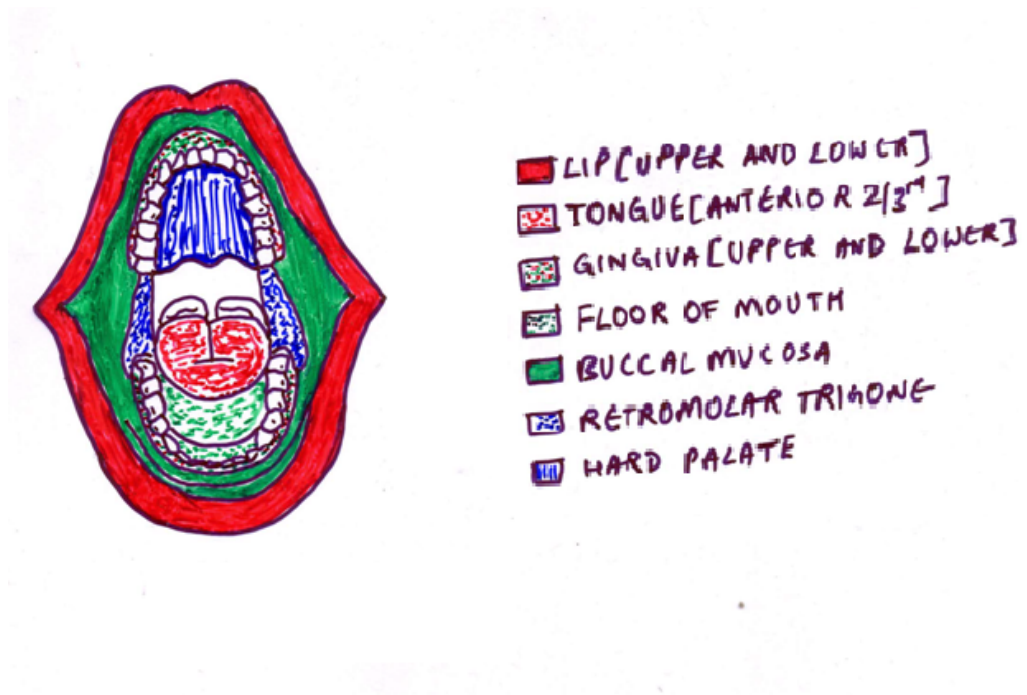 LIP[UPPER AND LOWER]
TONGUE[ANTERIOR 2/3rd]
GINGIVA[UPPER AND LOWER]
FLOOR OF MOUTH
BUCCAL MUCOSA
RETROMOLAR TRIGONE
HARD PALATE